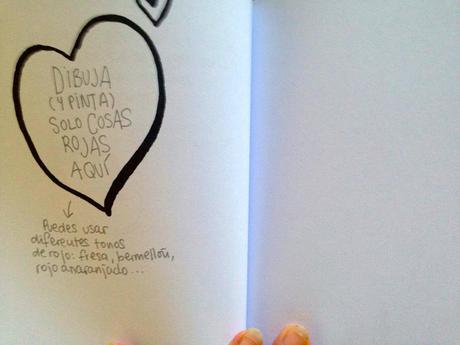 DIBUJA
(Y PINTA)
SOLO COSAS
ROJAS
AQUÍ
Puedes usar
diferentes tonos
de rojo: fresa, bermellón,
rojo anaranjado...